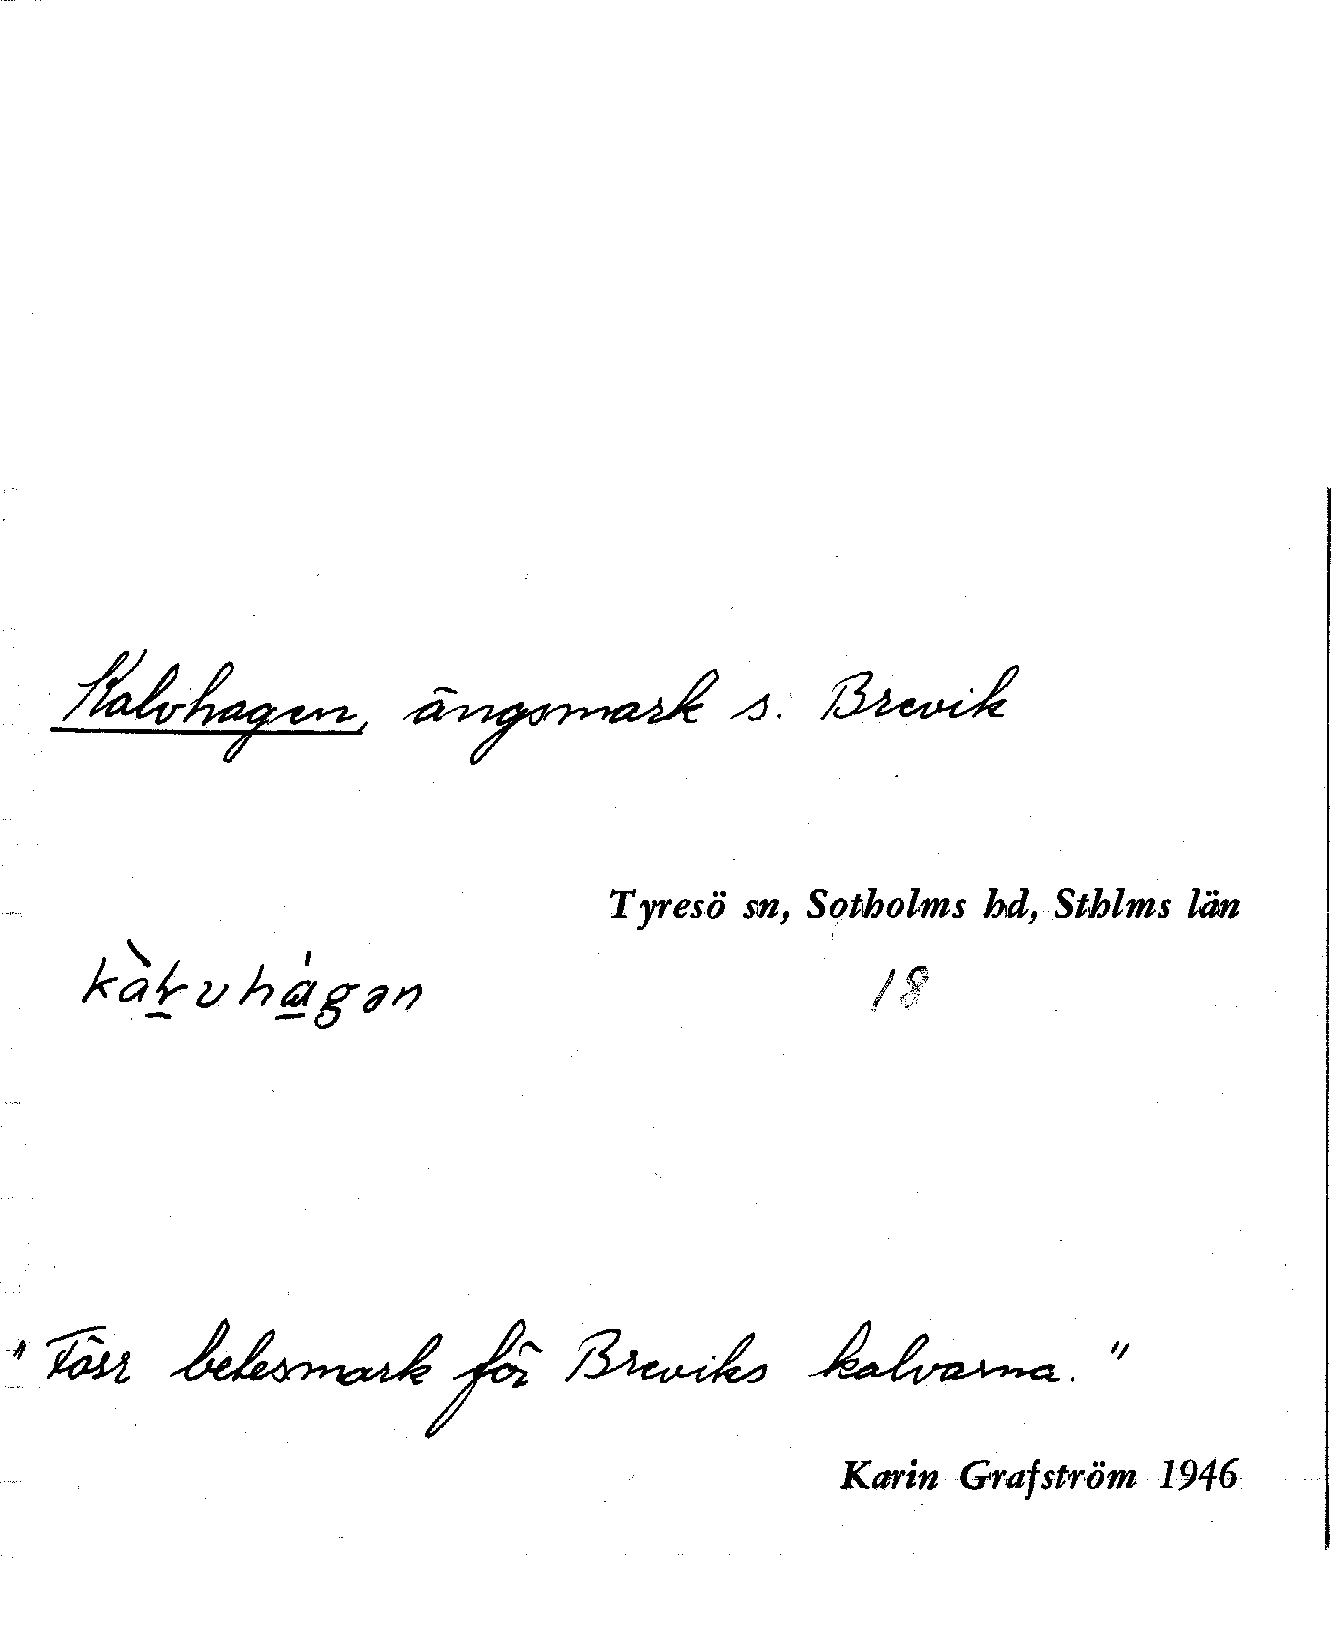 Kalvhagen, ängsmark s. Brevik
Tyresö sn, Sotholms hd, Sthlms län
18
"Förr betesmark för Breviks kalvarna."
Karin Grafström 1946